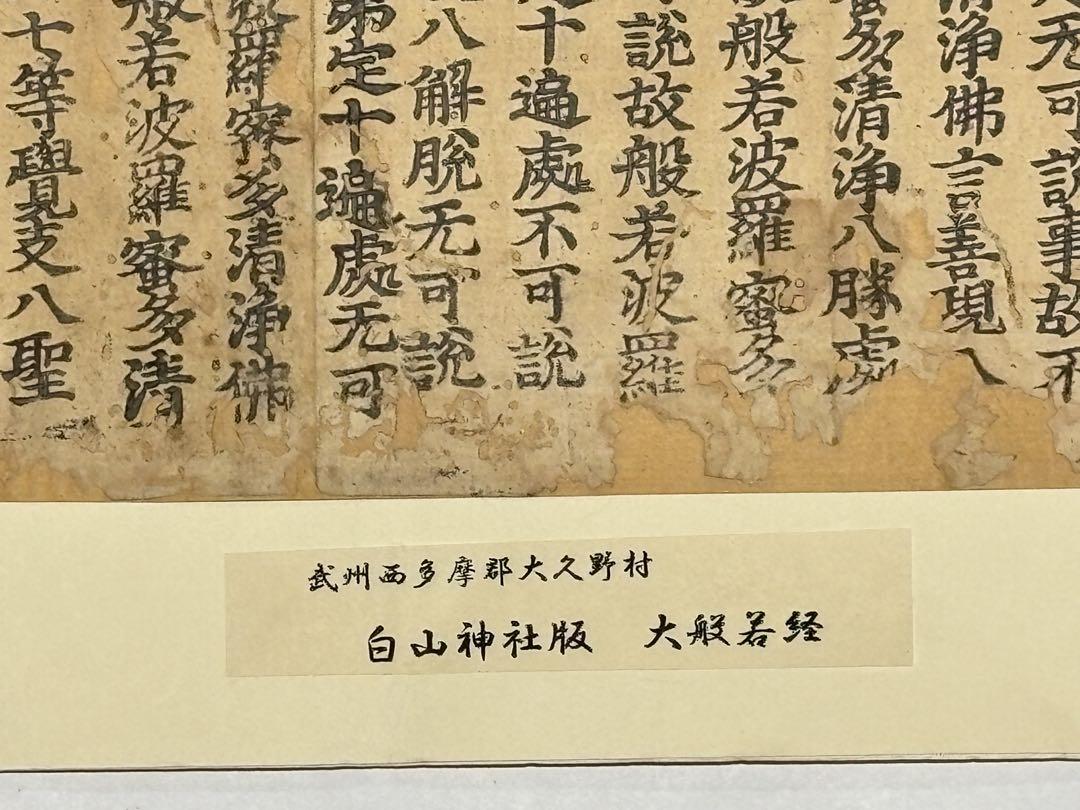 无可説事故不
清淨佛言善現八
蜜多清淨八勝處
般若波羅蜜多
説故般若波羅
十遍處不可説
八解脱无可説
弟定十遍處无可
羅蜜多清淨佛
般若波羅蜜多清
七等覺支八聖
武州西多摩郡大久野村
白山神社版 大般若経